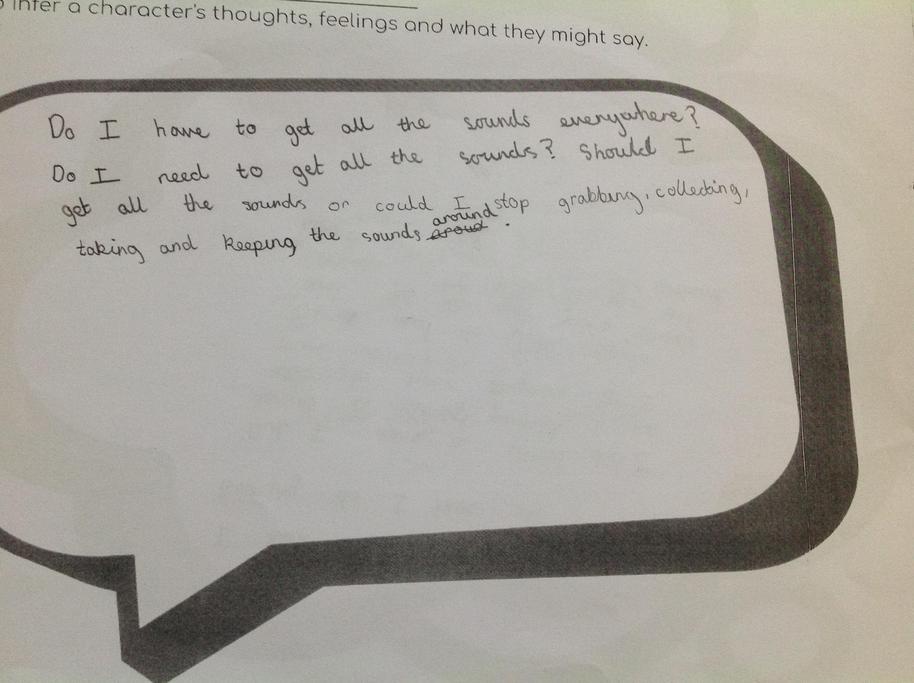 o infer a character's thoughts, feelings and what they might say.
Do I have to get all the sounds everywhere?
Do I need to get all the sounds? Should I
get all the sounds or could I stop grabbing, collecting,
taking and keeping the sounds around.